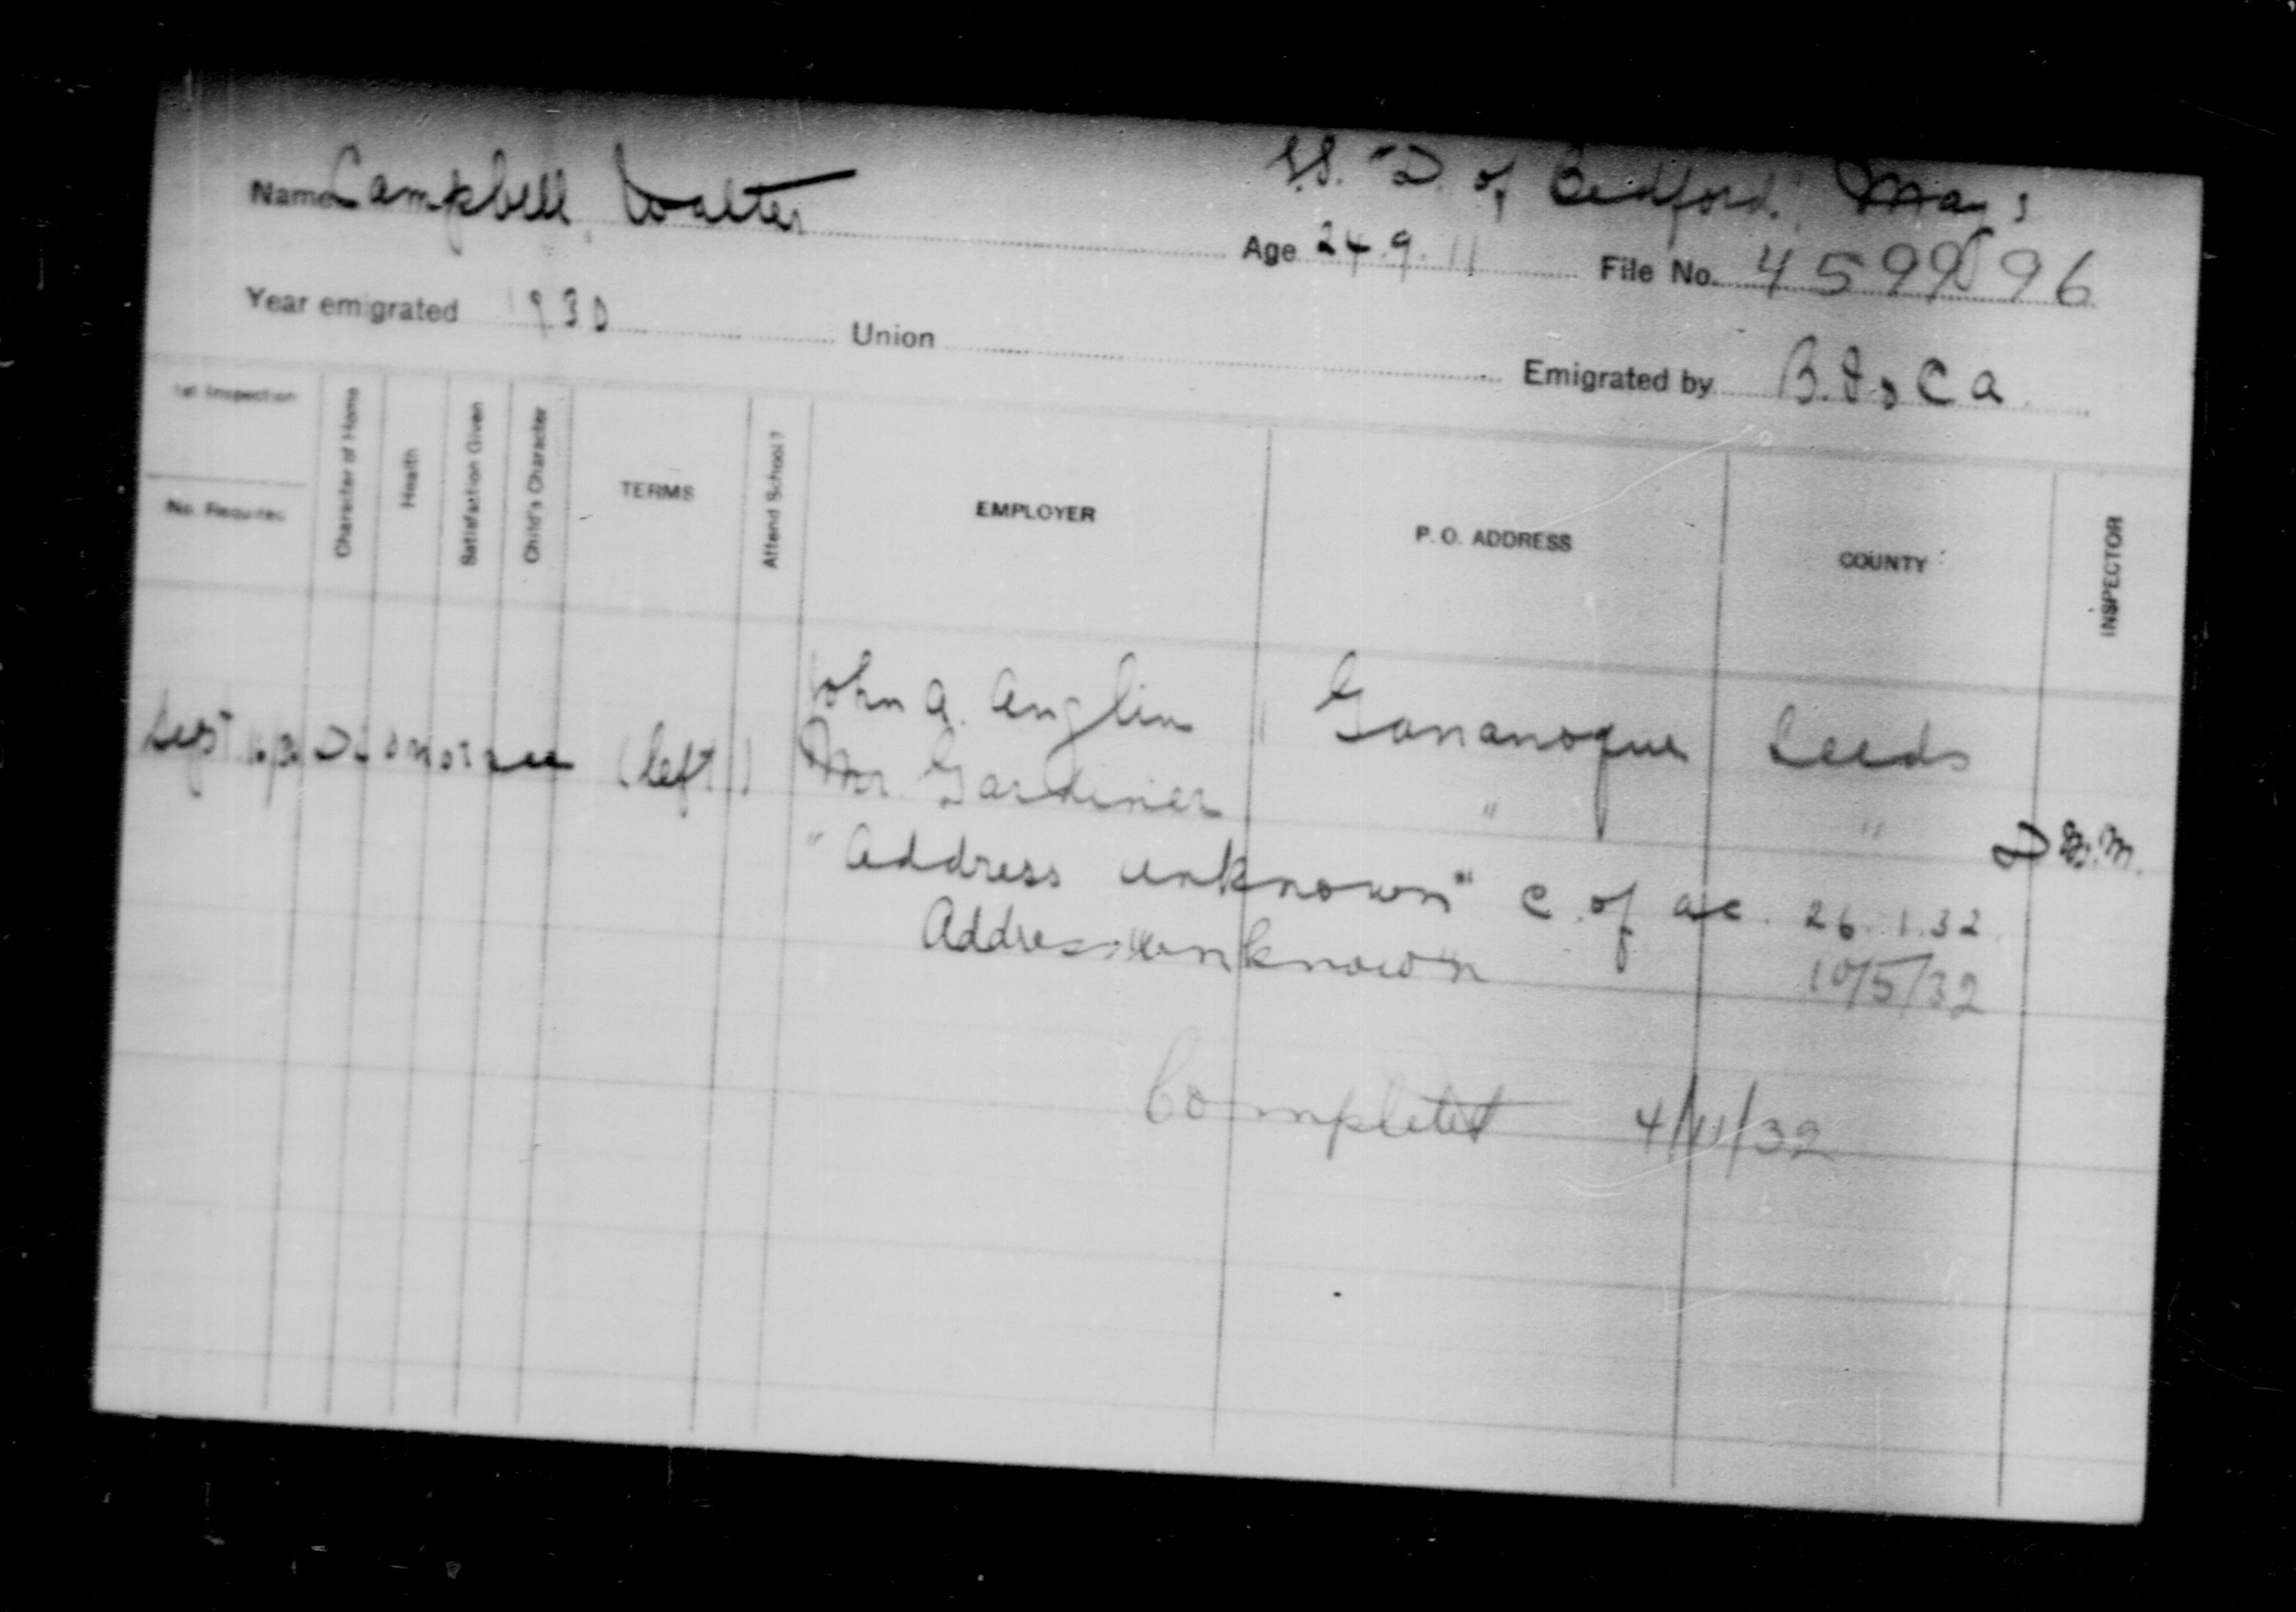 S.S. "D. of Bedford. May 3
Name Campbell, Walter
Age 24.9.11 File No. 4599 96
Year emigrated 1930 Union Emigrated by B.I. & C A
1st Inspection
No. Required
Character of Home
Health
Satisfaction Given
Child's Character
TERMS
Attend School?
EMPLOYER
P. O. ADDRESS
COUNTY
INSPECTOR
John A. Anglin Gananoque Leeds
Sept (left) Mr Gardiner " "
"Address unknown" C. of 26.1.32
Address unknown 10/5/32
Completed 4/11/32